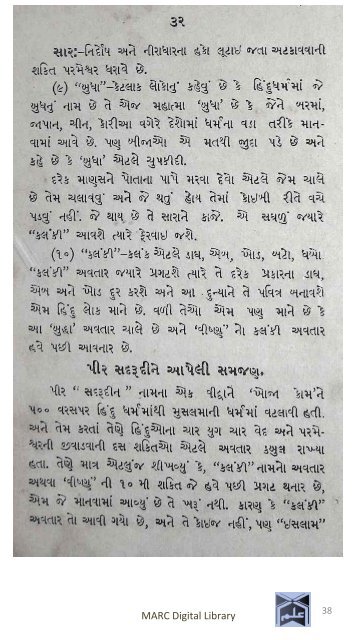 ૩૨
સારઃ–નિર્દોષ અને નીરાધારના હકો લૂટાઇ જતા અટકાવવાની
શકિત પરમેશ્વર ધરાવે છે.
(૯) “બુધા”–કેટલાક લોકોનું કહેવું છે કે હિંદુધર્મમાં જે
બુધનું નામ છે તે એજ મહાત્મા ‘બુધા’ છે કે જેને બરમાં,
જાપાન, ચીન, કોરીઆ વગેરે દેશોમાં ધર્મના વડા તરીકે માન-
વામાં આવે છે. પણ બીજાઓ એ મતથી જુદા પડે છે અને
કહે છે કે ‘બુધા’ એટલે ચુપકીદી.
દરેક માણસને પોતાના પાપે મરવા દેવો એટલે જેમ ચાલે
છે તેમ ચલાવવું અને જે થતું હોય તેમાં કોઇબી રીતે વચે
પડવું નહીં. જે થાય છે તે સારાને કાજે. એ સઘળું જ્યારે
“કલંકી” આવશે ત્યારે ફેરવાઇ જશે.
(૧૦) “કલંકી”–કલંક એટલે ડાઘ, એબ, ખોડ, બટો, ધબો
“કલંકી” અવતાર જ્યારે પ્રગટશે ત્યારે તે દરેક પ્રકારના ડાઘ,
એબ અને ખોડ દુર કરશે અને આ દુન્યાને તે પવિત્ર બનાવશે
એમ હિંદુ લોક માને છે. વળી તેઓ એમ પણ માને છે કે
આ ‘બુદ્ધા’ અવતાર ચાલે છે અને ‘વીષ્ણુ” નો કલંકી અવતાર
હવે પછી આવનાર છે.
પીર સદરૂદીને આપેલી સમજણ.
પીર “ સદરૂદીન ” નામના એક વીદ્વાને ‘ખોજા કોમ’ને
૫૦૦ વરસપર હિંદુ ધર્મમાંથી મુસલમાની ધર્મમાં વટલાવી હતી.
અને તેમ કરતાં તેણે હિંદુઓના ચાર યુગ ચાર વેદ અને પરમે-
શ્વરની જીવાડવાની દસ શકિતઓ એટલે અવતાર કબુલ રાખ્યા
હતા. તેણે માત્ર એટલુંજ શીખવ્યું કે, “કલંકી” નામનો અવતાર
અથવા ‘વીષ્ણુ” ની ૧૦ મી શકિત જે હવે પછી પ્રગટ થનાર છે,
એમ જે માનવામાં આવ્યું છે તે ખરૂં નથી. કારણ કે “કલંકી”
અવતાર તો આવી ગયો છે, અને તે કોઇજ નહીં, પણ “ઇસલામ”
MARC Digital Library
38